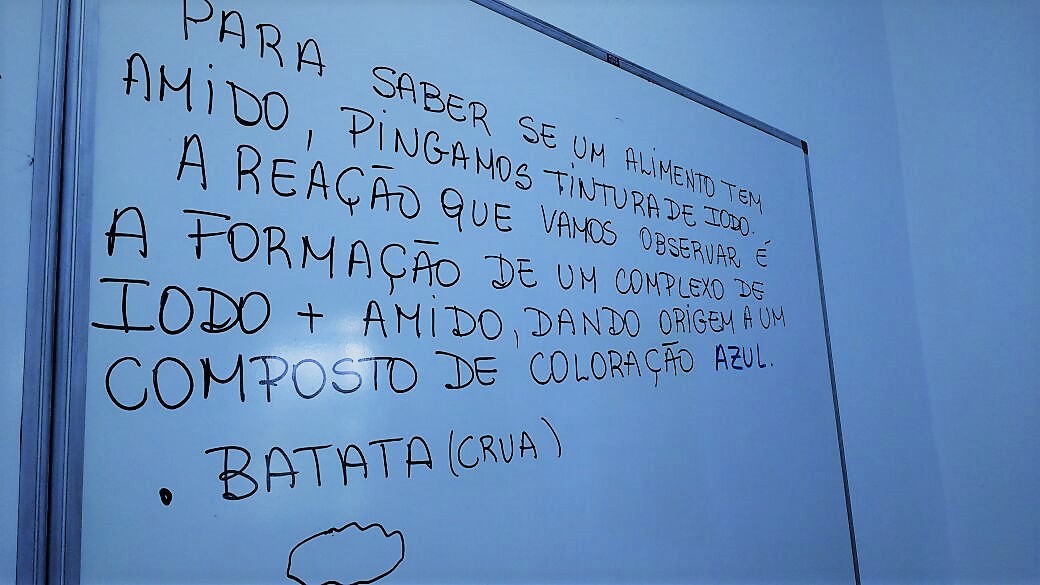 PARA SABER SE UM ALIMENTO TEM
AMIDO, PINGAMOS TINTURA DE IODO.
A REAÇÃO QUE VAMOS OBSERVAR É
A FORMAÇÃO DE UM COMPLEXO DE
IODO + AMIDO, DANDO ORIGEM A UM
COMPOSTO DE COLORAÇÃO AZUL.
• BATATA (CRUA)